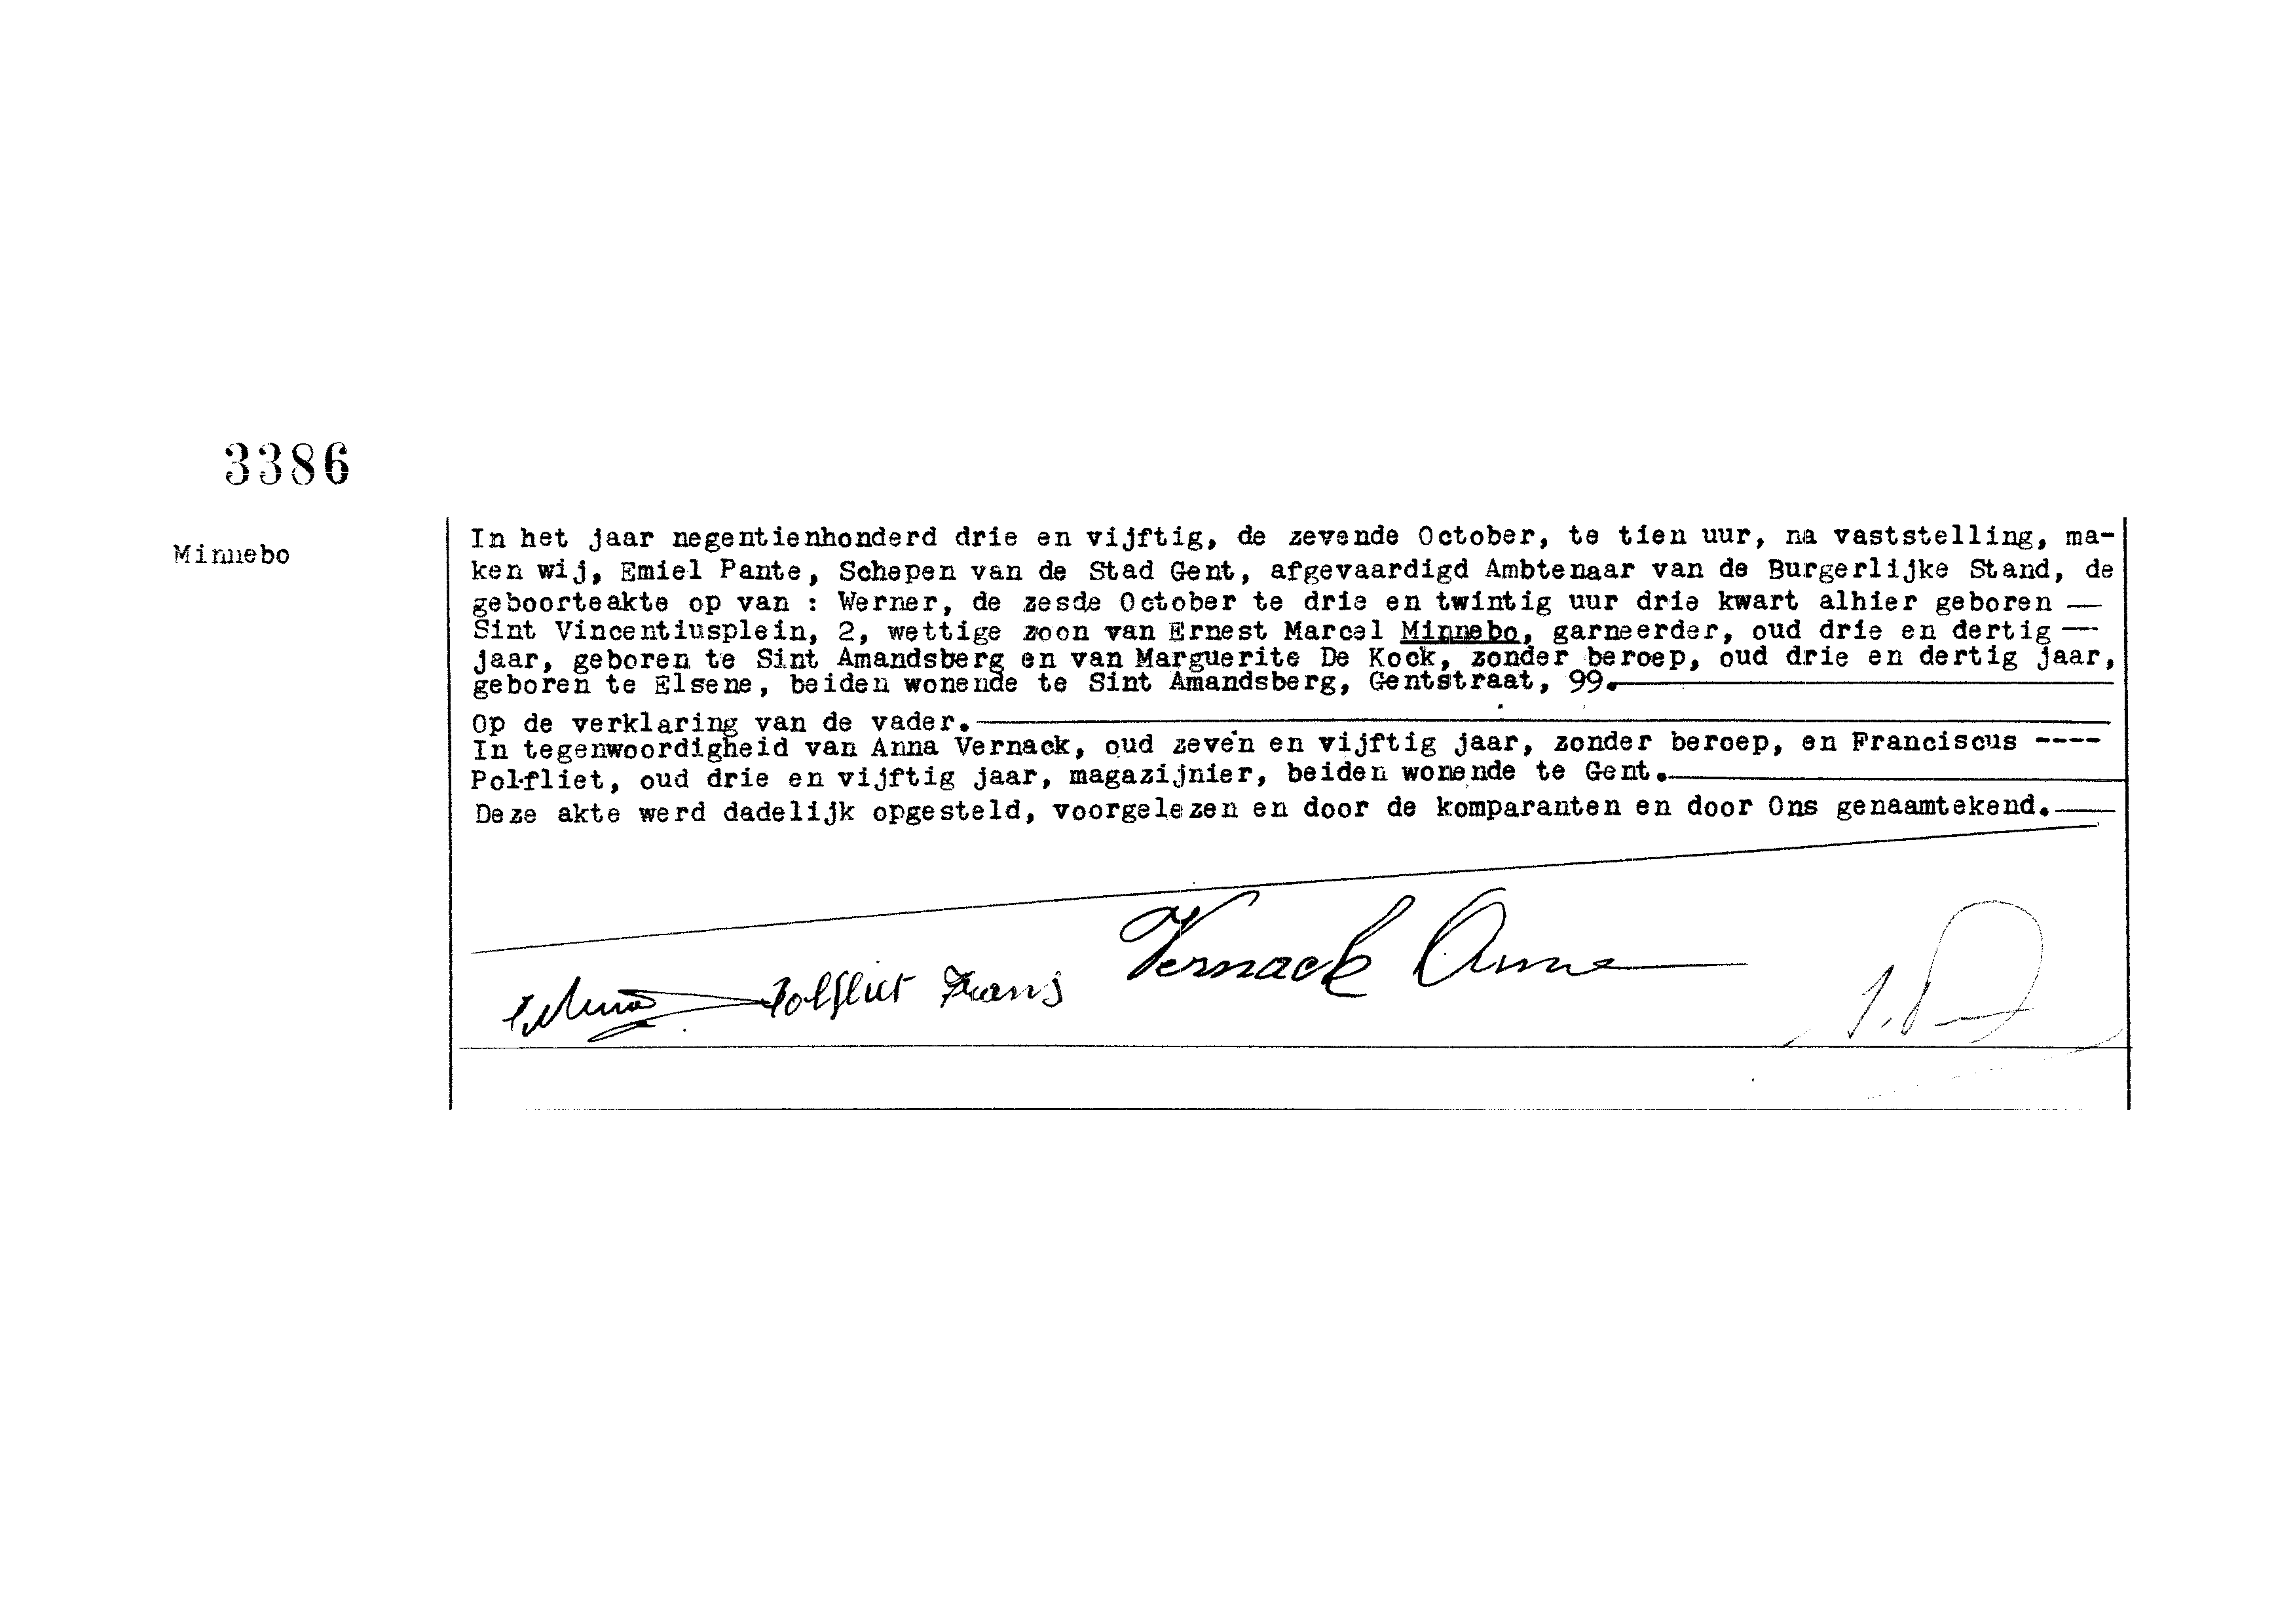 3386
Minnebo
In het jaar negentienhonderd drie en vijftig, de zevende October, te tien uur, na vaststelling, ma-
ken wij, Emiel Pante, Schepen van de Stad Gent, afgevaardigd Ambtenaar van de Burgerlijke Stand, de
geboorteakte op van : Werner, de zesde October te drie en twintig uur drie kwart alhier geboren —
Sint Vincentiusplein, 2, wettige zoon van Ernest Marcel Minnebo, garneerder, oud drie en dertig —
jaar, geboren te Sint Amandsberg en van Marguerite De Kock, zonder beroep, oud drie en dertig jaar,
geboren te Elsene, beiden wonende te Sint Amandsberg, Gentstraat, 99.
Op de verklaring van de vader.
In tegenwoordigheid van Anna Vernack, oud zeven en vijftig jaar, zonder beroep, en Franciscus ----
Polfliet, oud drie en vijftig jaar, magazijnier, beiden wonende te Gent.
Deze akte werd dadelijk opgesteld, voorgelezen en door de komparanten en door Ons genaamtekend.
Polfliet Frans Vernack Anna